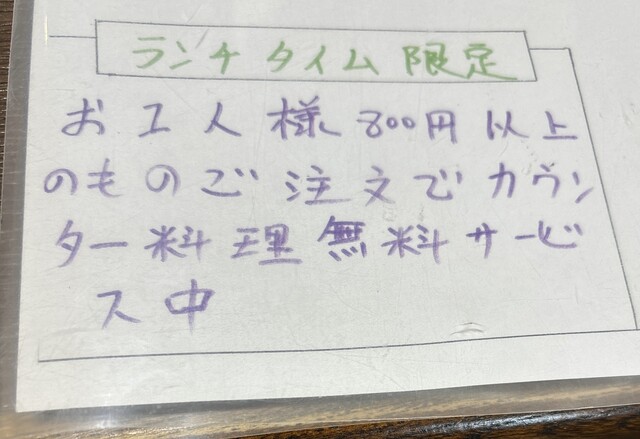 ランチタイム限定
お1人様800円以上
のものご注文でカウン
ター料理無料サービ
ス中